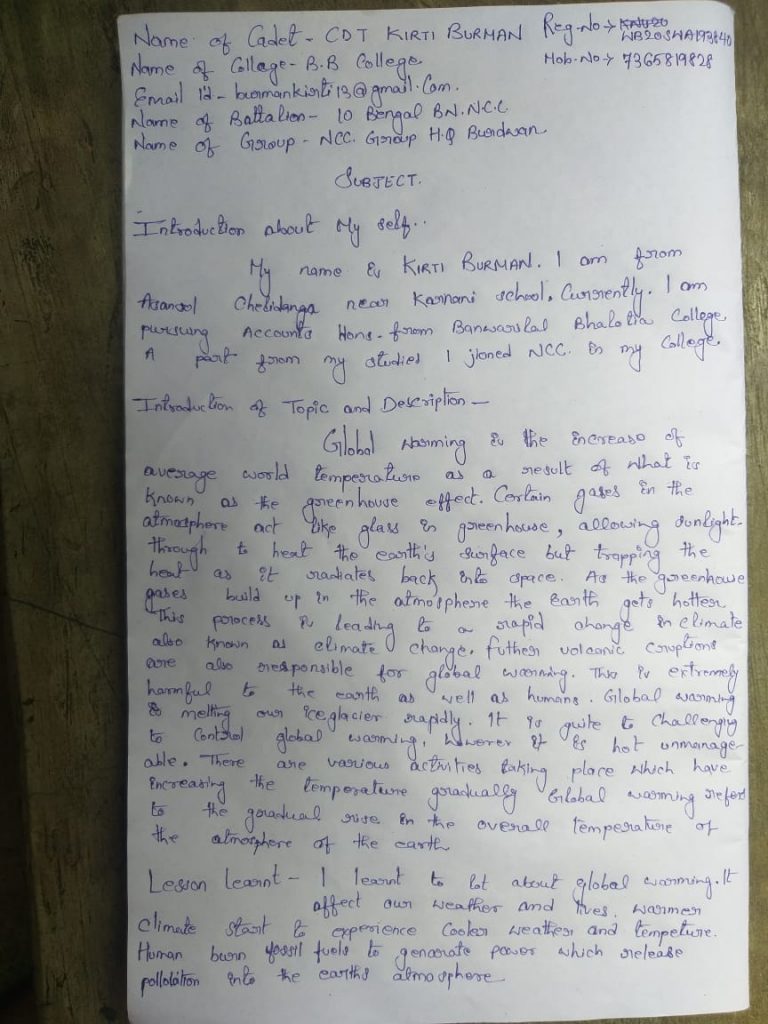 Name of Cadet - CDT KIRTI BURMAN Reg.No → WB20SWA193840
Name of College - B.B College Mob.No → 7365819828
Email I'd - burmankirti13@gmail.Com.
Name of Battalion - 10 Bengal BN.N.C.C
Name of Group - NCC. Group H.Q Burdwan
SUBJECT.
Introduction about My self..
My name is KIRTI BURMAN. I am from
Asansol Chelidanga near Karnani school. Currently. I am
pursung Accounts Hons. from Banwarslal Bhalotia College
A part from my studies I jioned NCC. in my College
Introduction of Topic and Description —
Global warming is the increase of
average world temperature as a result of what is
known as the greenhouse effect. Certain gases in the
atmosphere act like glass in greenhouse, allowing sunlight
through to heat the earth's surface but trapping the
heat as it radiates back into space. As the greenhouse
gases build up in the atmosphere the Earth gets hotter
This process is leading to a rapid change in climate
also known as climate change. futher volcanic eruptions
are also responsible for global warming. This is extremely
harmful to the earth as well as humans. Global warming
is melting our ice glacier rapidly. It is quite to challenging
to control global warming, however it is not unmanage-
able. There are various activities taking place which have
increasing the temperature gradually Global warming refers
to the gradual rise in the overall temperature of
the atmosphere of the earth
Lesson learnt - I learnt to lot about global warming. It
affect our weather and lives. warmer
climate start to experience cooler weather and tempeture.
Human burn fossil fuels to genarate power which release
into the earths atmosphere